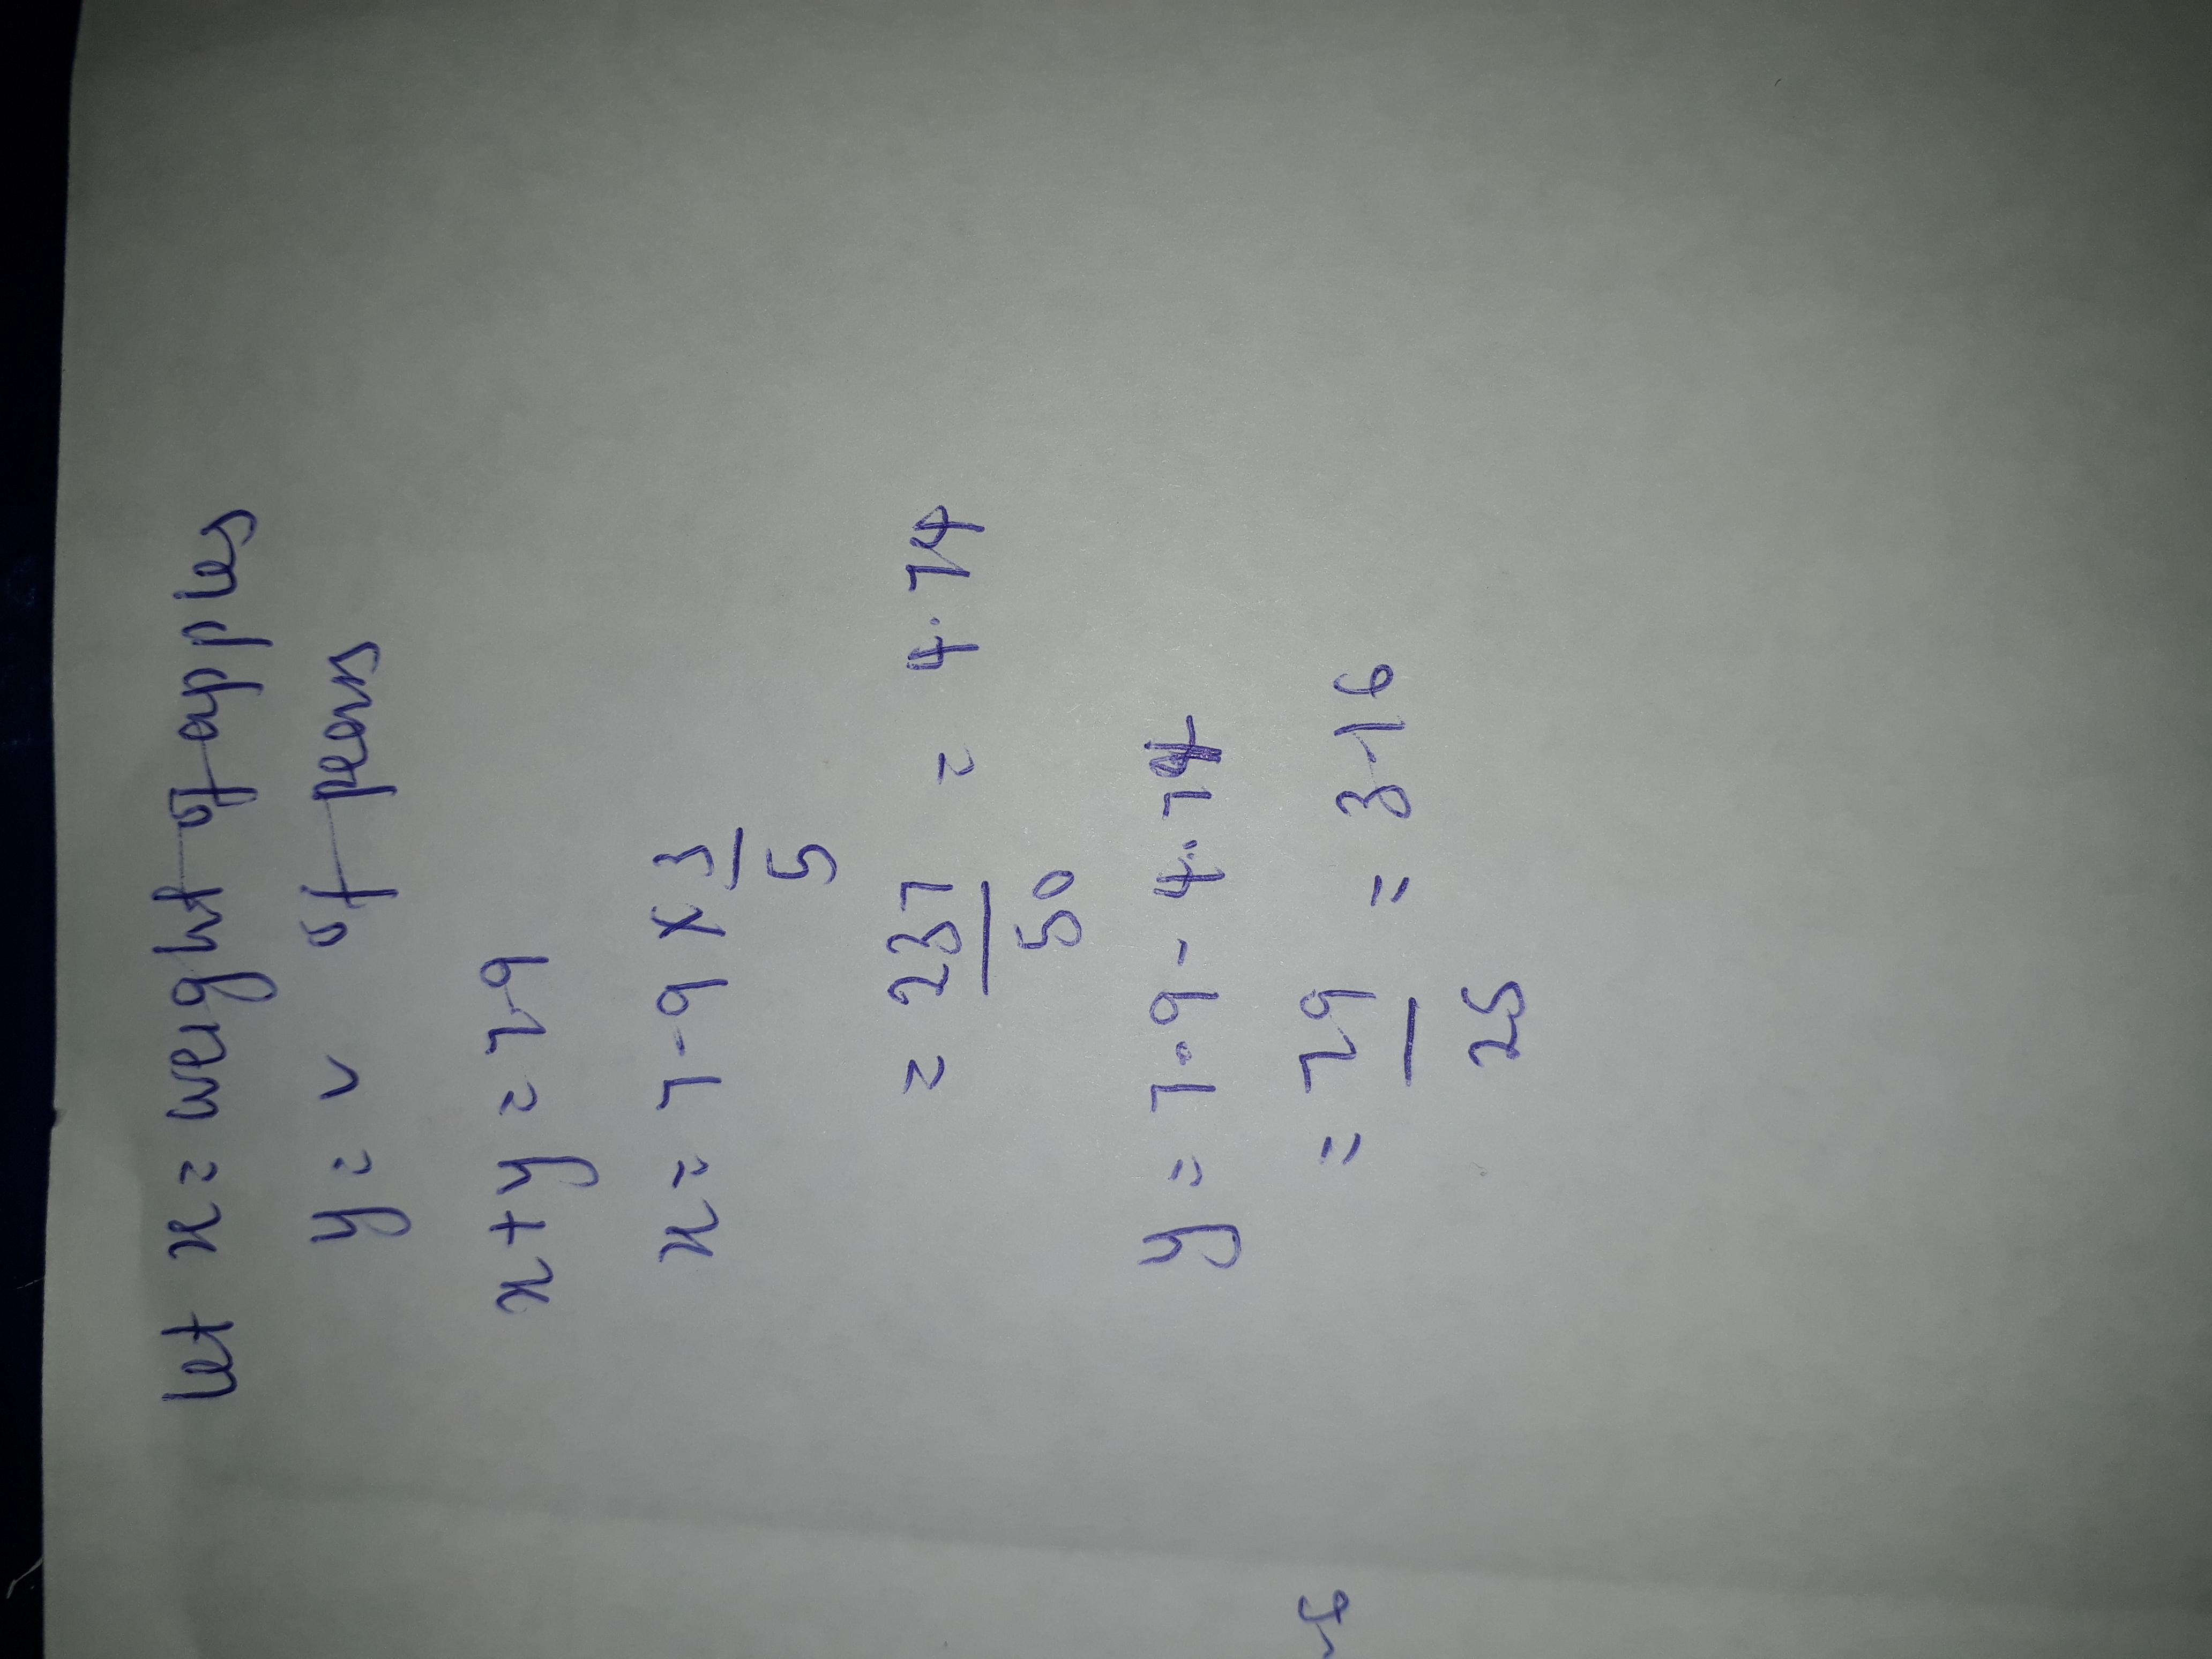 let x = weight of apples
y = v of pears
x + y = 7.9
x = 7.9 x 3/5
= 237/50 = 4.74
y = 7.9 - 4.74
= 79/25 = 3.16